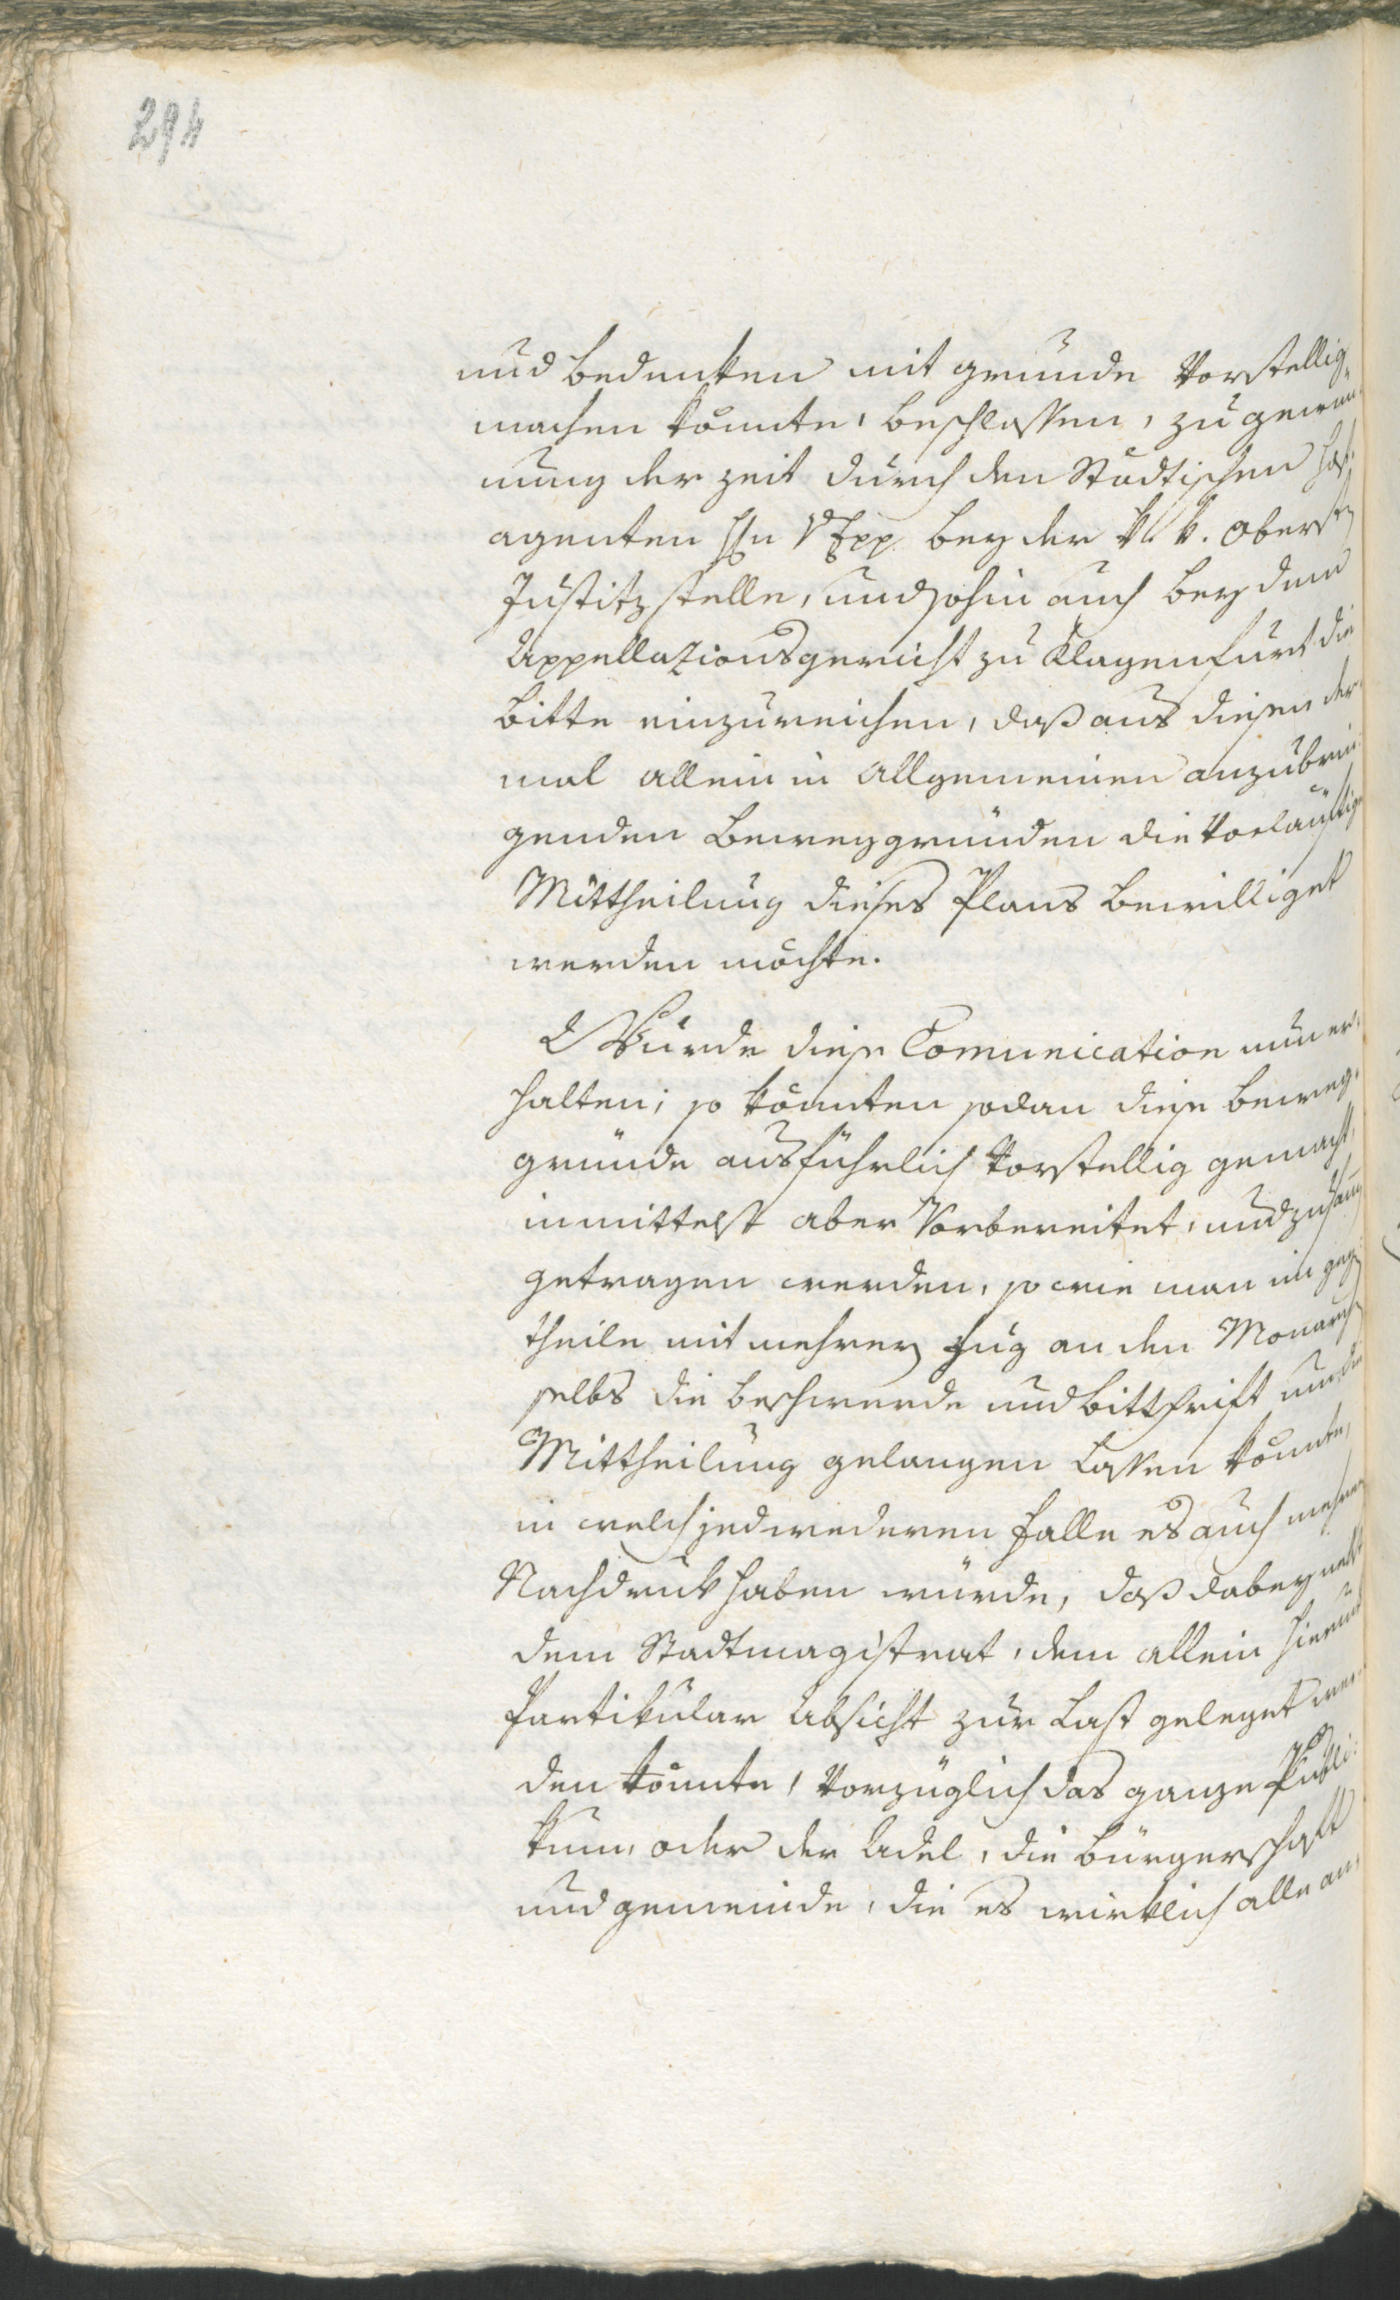 294
und bedenken mit grunde vorstellig
machen könnte, beschlossen, zu gewin¬
nung der zeit durch den Städtischen Hof¬
agenten H. v Epp. bey der k. k. oberstn
Justitzstelle, und sohin auch bey dem
Appellazionsgericht zu Klagenfurt die
bitte einzureichen, daß aus diesen der¬
mal allein in allgemeinen anzubrin¬
genden beweggründen die vorläufige
Mittheilung dieses Plans bewilliget
werden möchte.
Würde diese Comunication nun er¬
halten; so könnten sodan diese beweg¬
gründe ausführlich vorstellig gemacht,
inmittelst aber vorbereitet, und zusam
getragen werden, so wie man im gegen
theile mit mehrern fug an den Monarchn
selbs die beschwerde und bittschrift um die
Mittheilung gelangen lassen könnte,
in welch jedwederen falle es auch mehrern
Nachdruk haben würde, daß dabey nebst
dem Stadtmagistrat, dem allein hierin
Partikular absicht zur last geleget wer¬
den könnte, vorzüglich das ganze Publi¬
kum, oder der adel, die bürgerschaft
und gemeinde, die es wirklich alle an¬